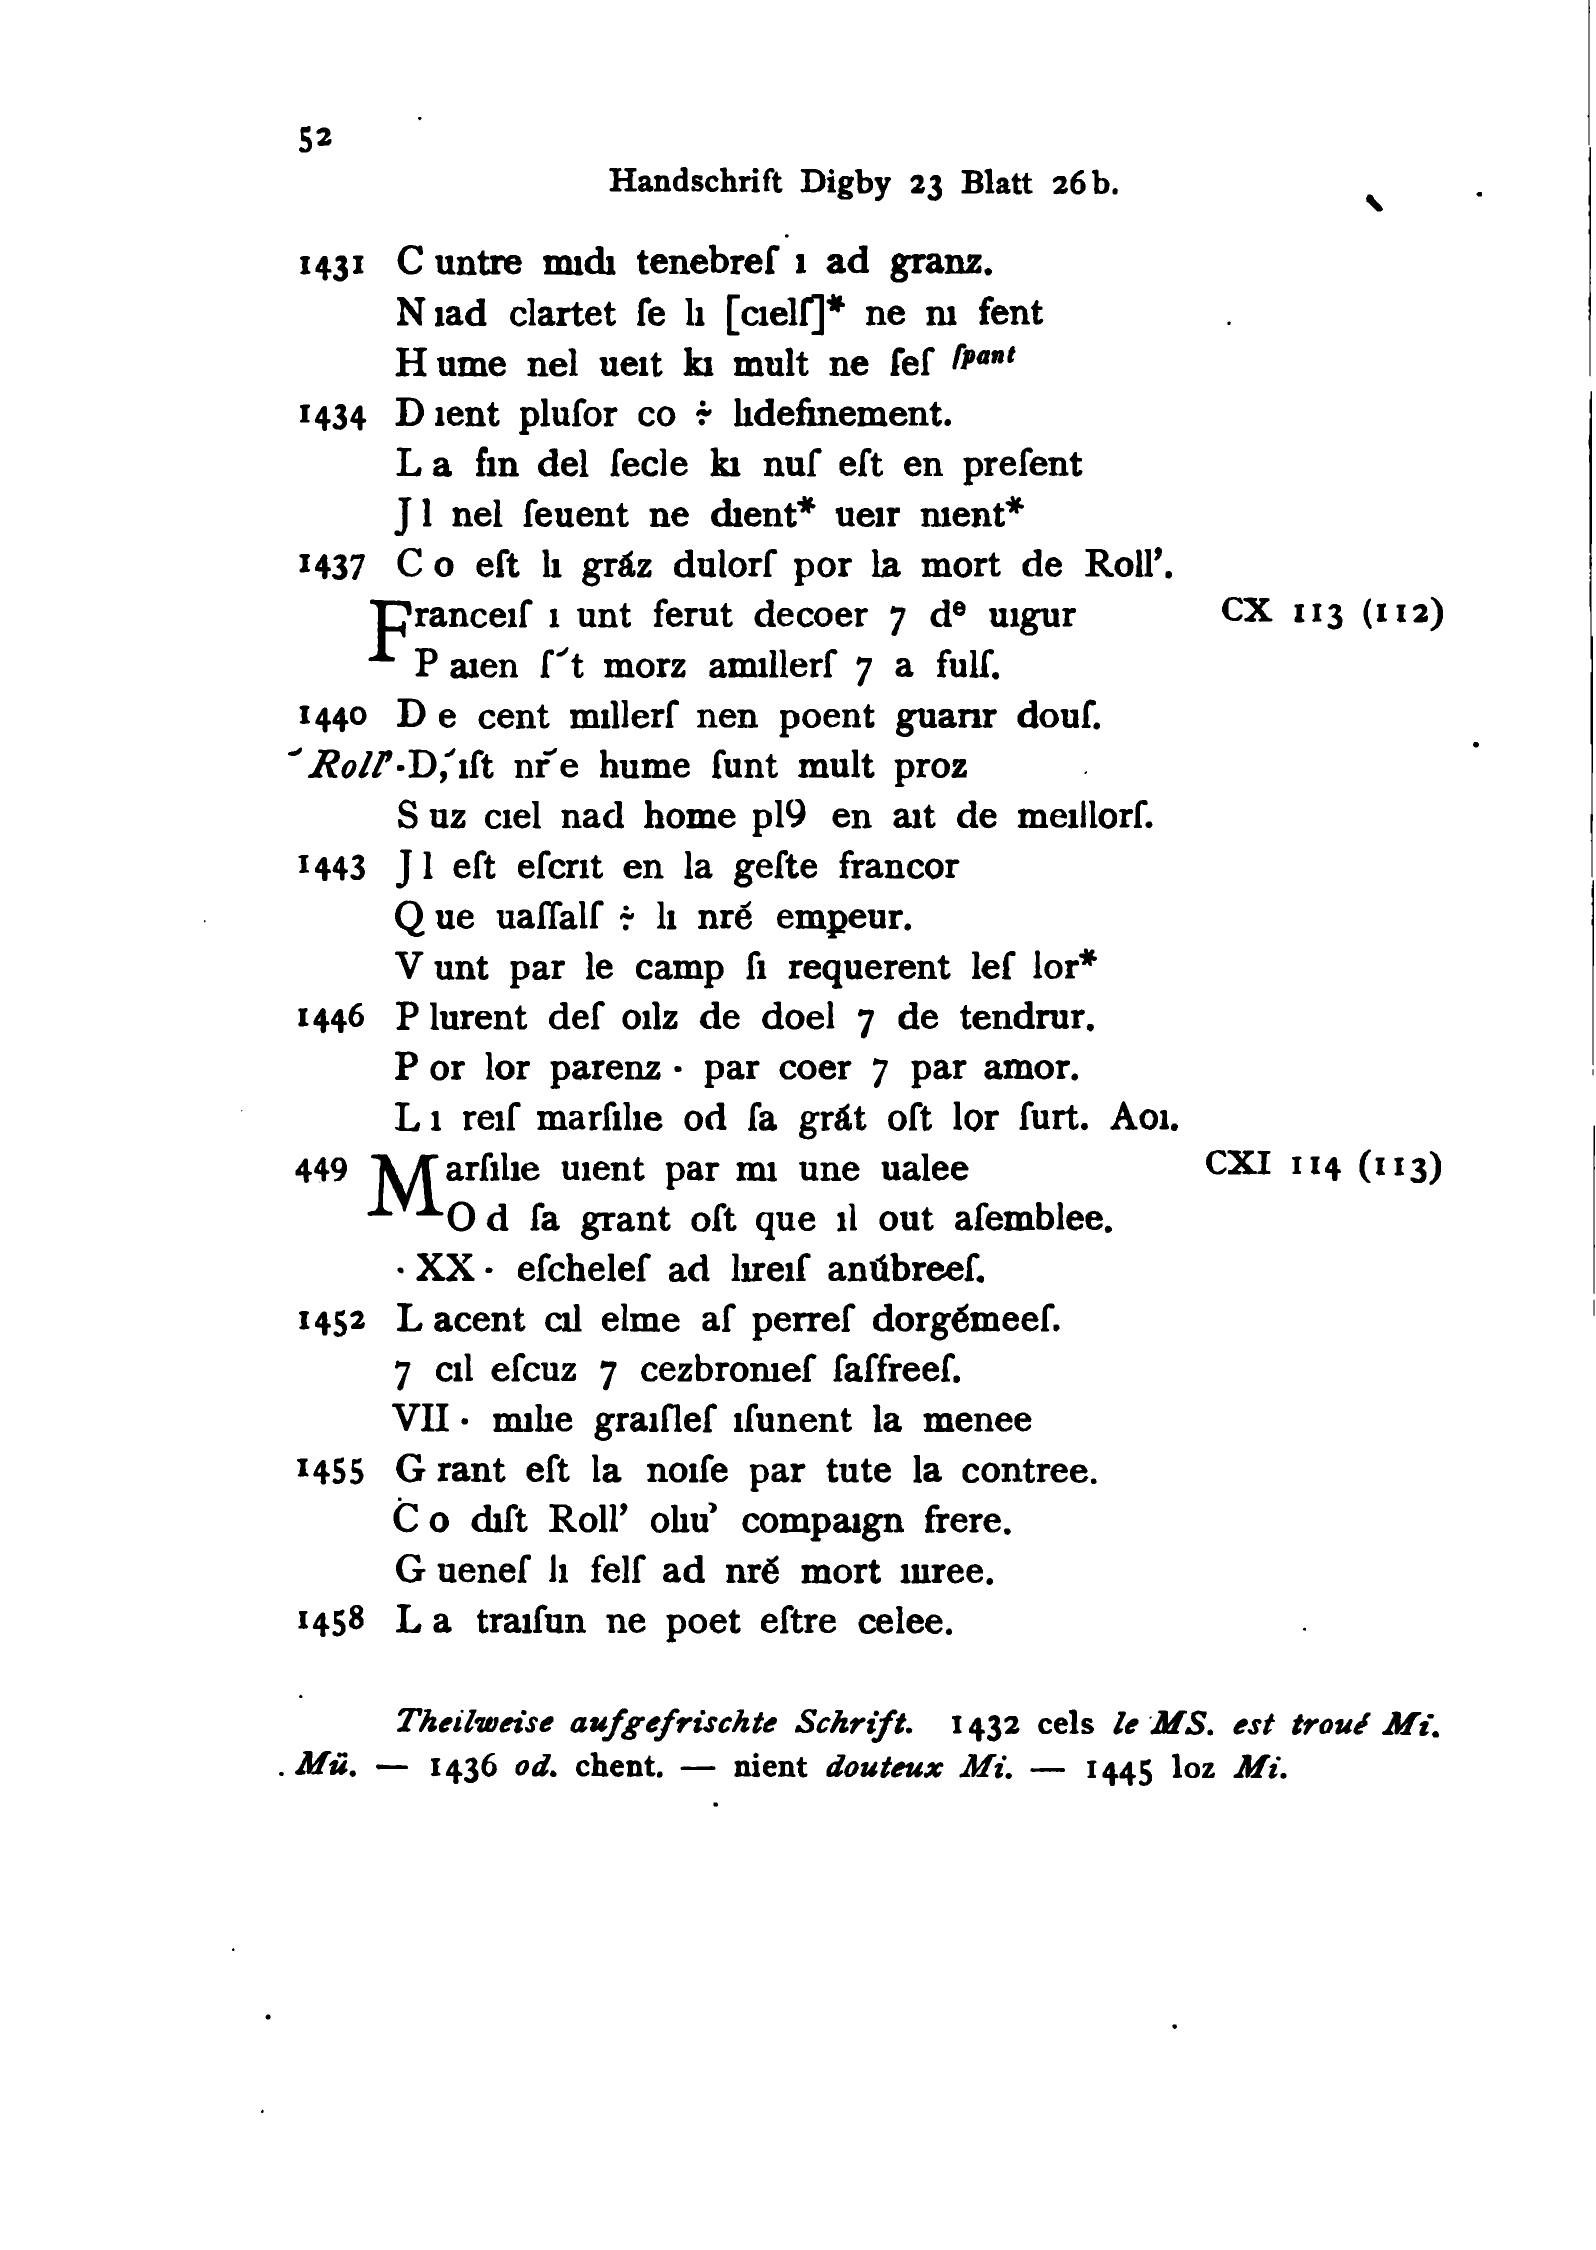 52
Handschrift Digby 23 Blatt 26b.
1431 C untre mıdı tenebreſ ı ad granz.
N ıad clartet ſe lı [cıelſ]* ne nı fent
H ume nel ueıt kı mult ne ſeſ ſpant
1434 D ıent pluſor co ÷ lıdefinement.
L a fın del ſecle kı nuſ eſt en preſent
J l nel ſeuent ne dıent* ueır nıent*
1437 C o eſt lı gráz dulorſ por la mort de Roll’.
Franceıſ ı unt ferut decoer 7 dᵉ uıgur CX 113 (112)
P aıen ſ´t morz amıllerſ 7 a fulſ.
1440 D e cent mıllerſ nen poent guarır douſ.
´Roll’·D,´ıſt nr̆e hume ſunt mult proz
S uz cıel nad home pl9 en aıt de meıllorſ.
1443 J l eſt eſcrıt en la geſte francor
Q ue uaſſalſ ÷ lı nrĕ empeur.
V unt par le camp ſı requerent leſ lor*
1446 P lurent deſ oılz de doel 7 de tendrur.
P or lor parenz · par coer 7 par amor.
L ı reıſ marſılıe od ſa grát oſt lor ſurt. Aoı.
449 Marſılıe uıent par mı une ualee CXI 114 (113)
O d ſa grant oſt que ıl out aſemblee.
· XX · eſcheleſ ad lıreıſ anúbreeſ.
1452 L acent cıl elme aſ perreſ dorgémeeſ.
7 cıl eſcuz 7 cezbronıeſ ſaffreeſ.
VII · mılıe graıſleſ ıſunent la menee
1455 G rant eſt la noıſe par tute la contree.
C o dıſt Roll’ olıu’ compaıgn frere.
G ueneſ lı felſ ad nrĕ mort ıuree.
1458 L a traıſun ne poet eſtre celee.
Theilweise aufgefrischte Schrift. 1432 cels le MS. est troué Mi.
Mü. — 1436 od. chent. — nient douteux Mi. — 1445 loz Mi.